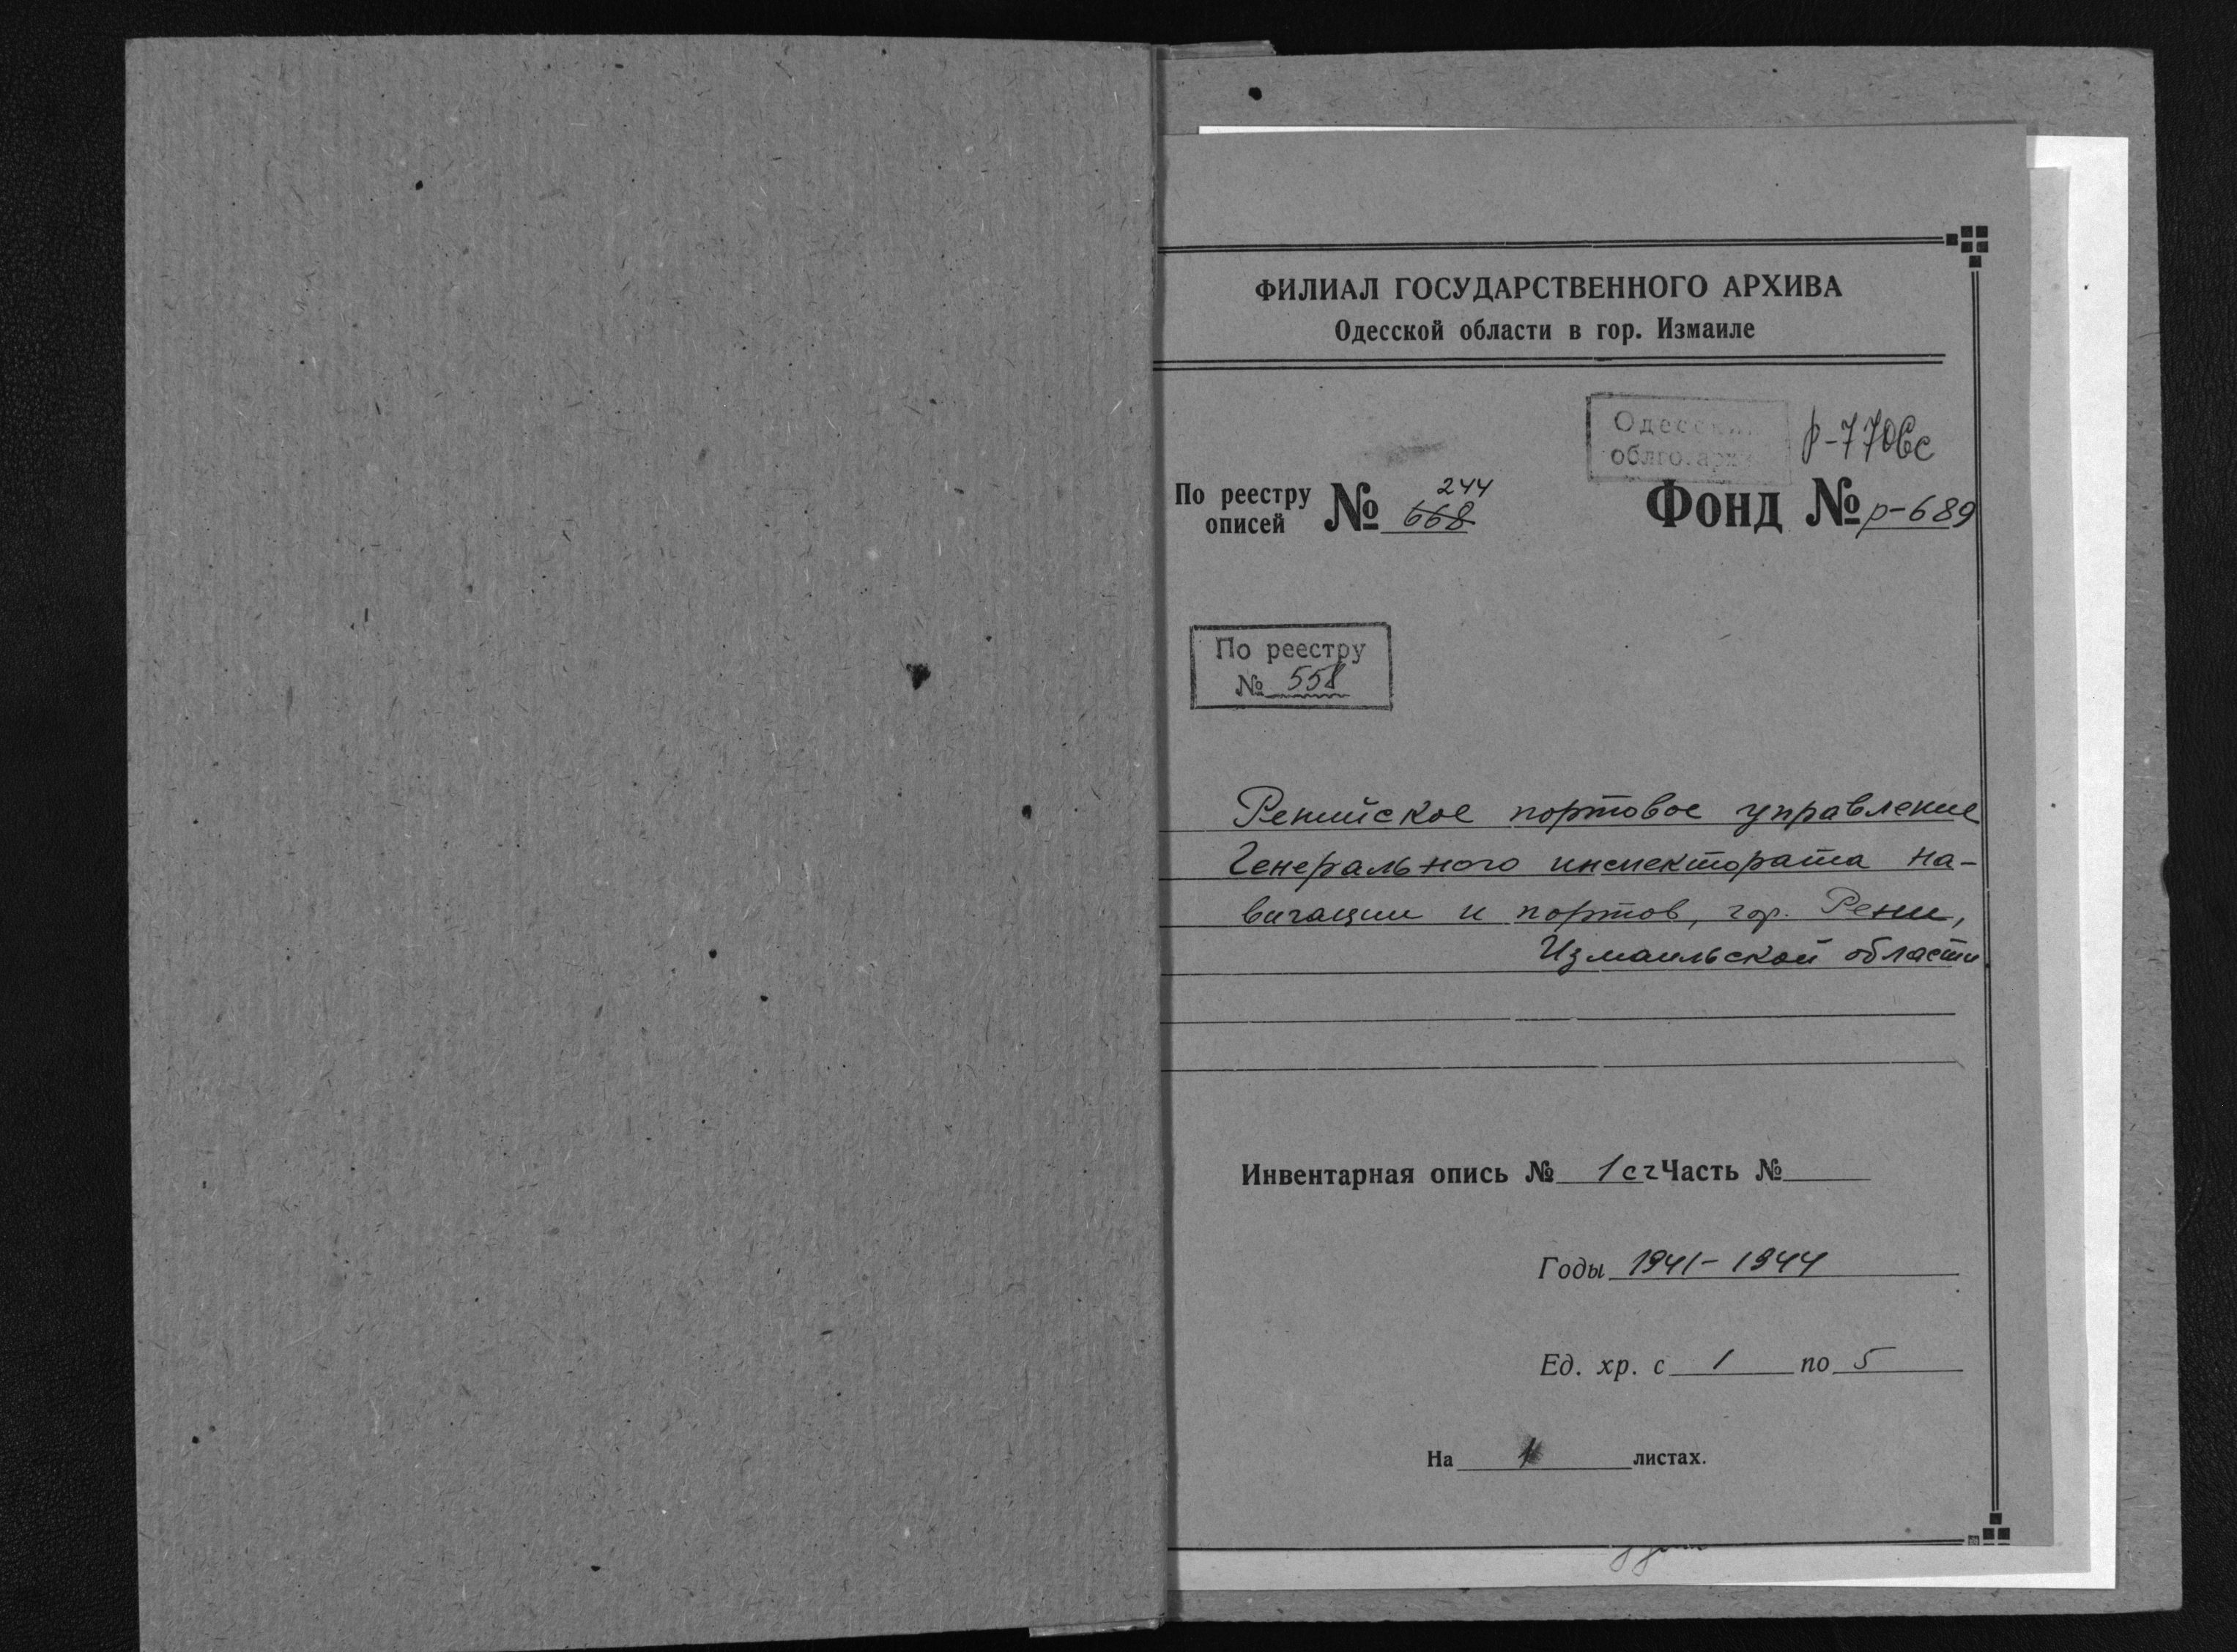 ФИЛИАЛ ГОСУДАРСТВЕННОГО АРХИВА
Одесской области в гор. Измаиле
р-7706с
По реестру
описей № 668 244
Фонд № р-689
По реестру
№ 558
Ренийское портовое управление
Генерального инспектората на-
вигации и портов, гор. Рени,
Измаильской области
Инвентарная опись № 1сч Часть №
Годы 1941-1944
Ед. хр. с 1 по 5
На листах.